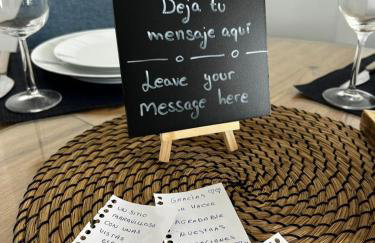 Deja tu
mensaje aquí
Leave your
Message here
UN SITIO
MARAVILLOSO
CON UNAS
VISTAS
GRACIAS
HACER
AGRADABLE
NUESTRAS